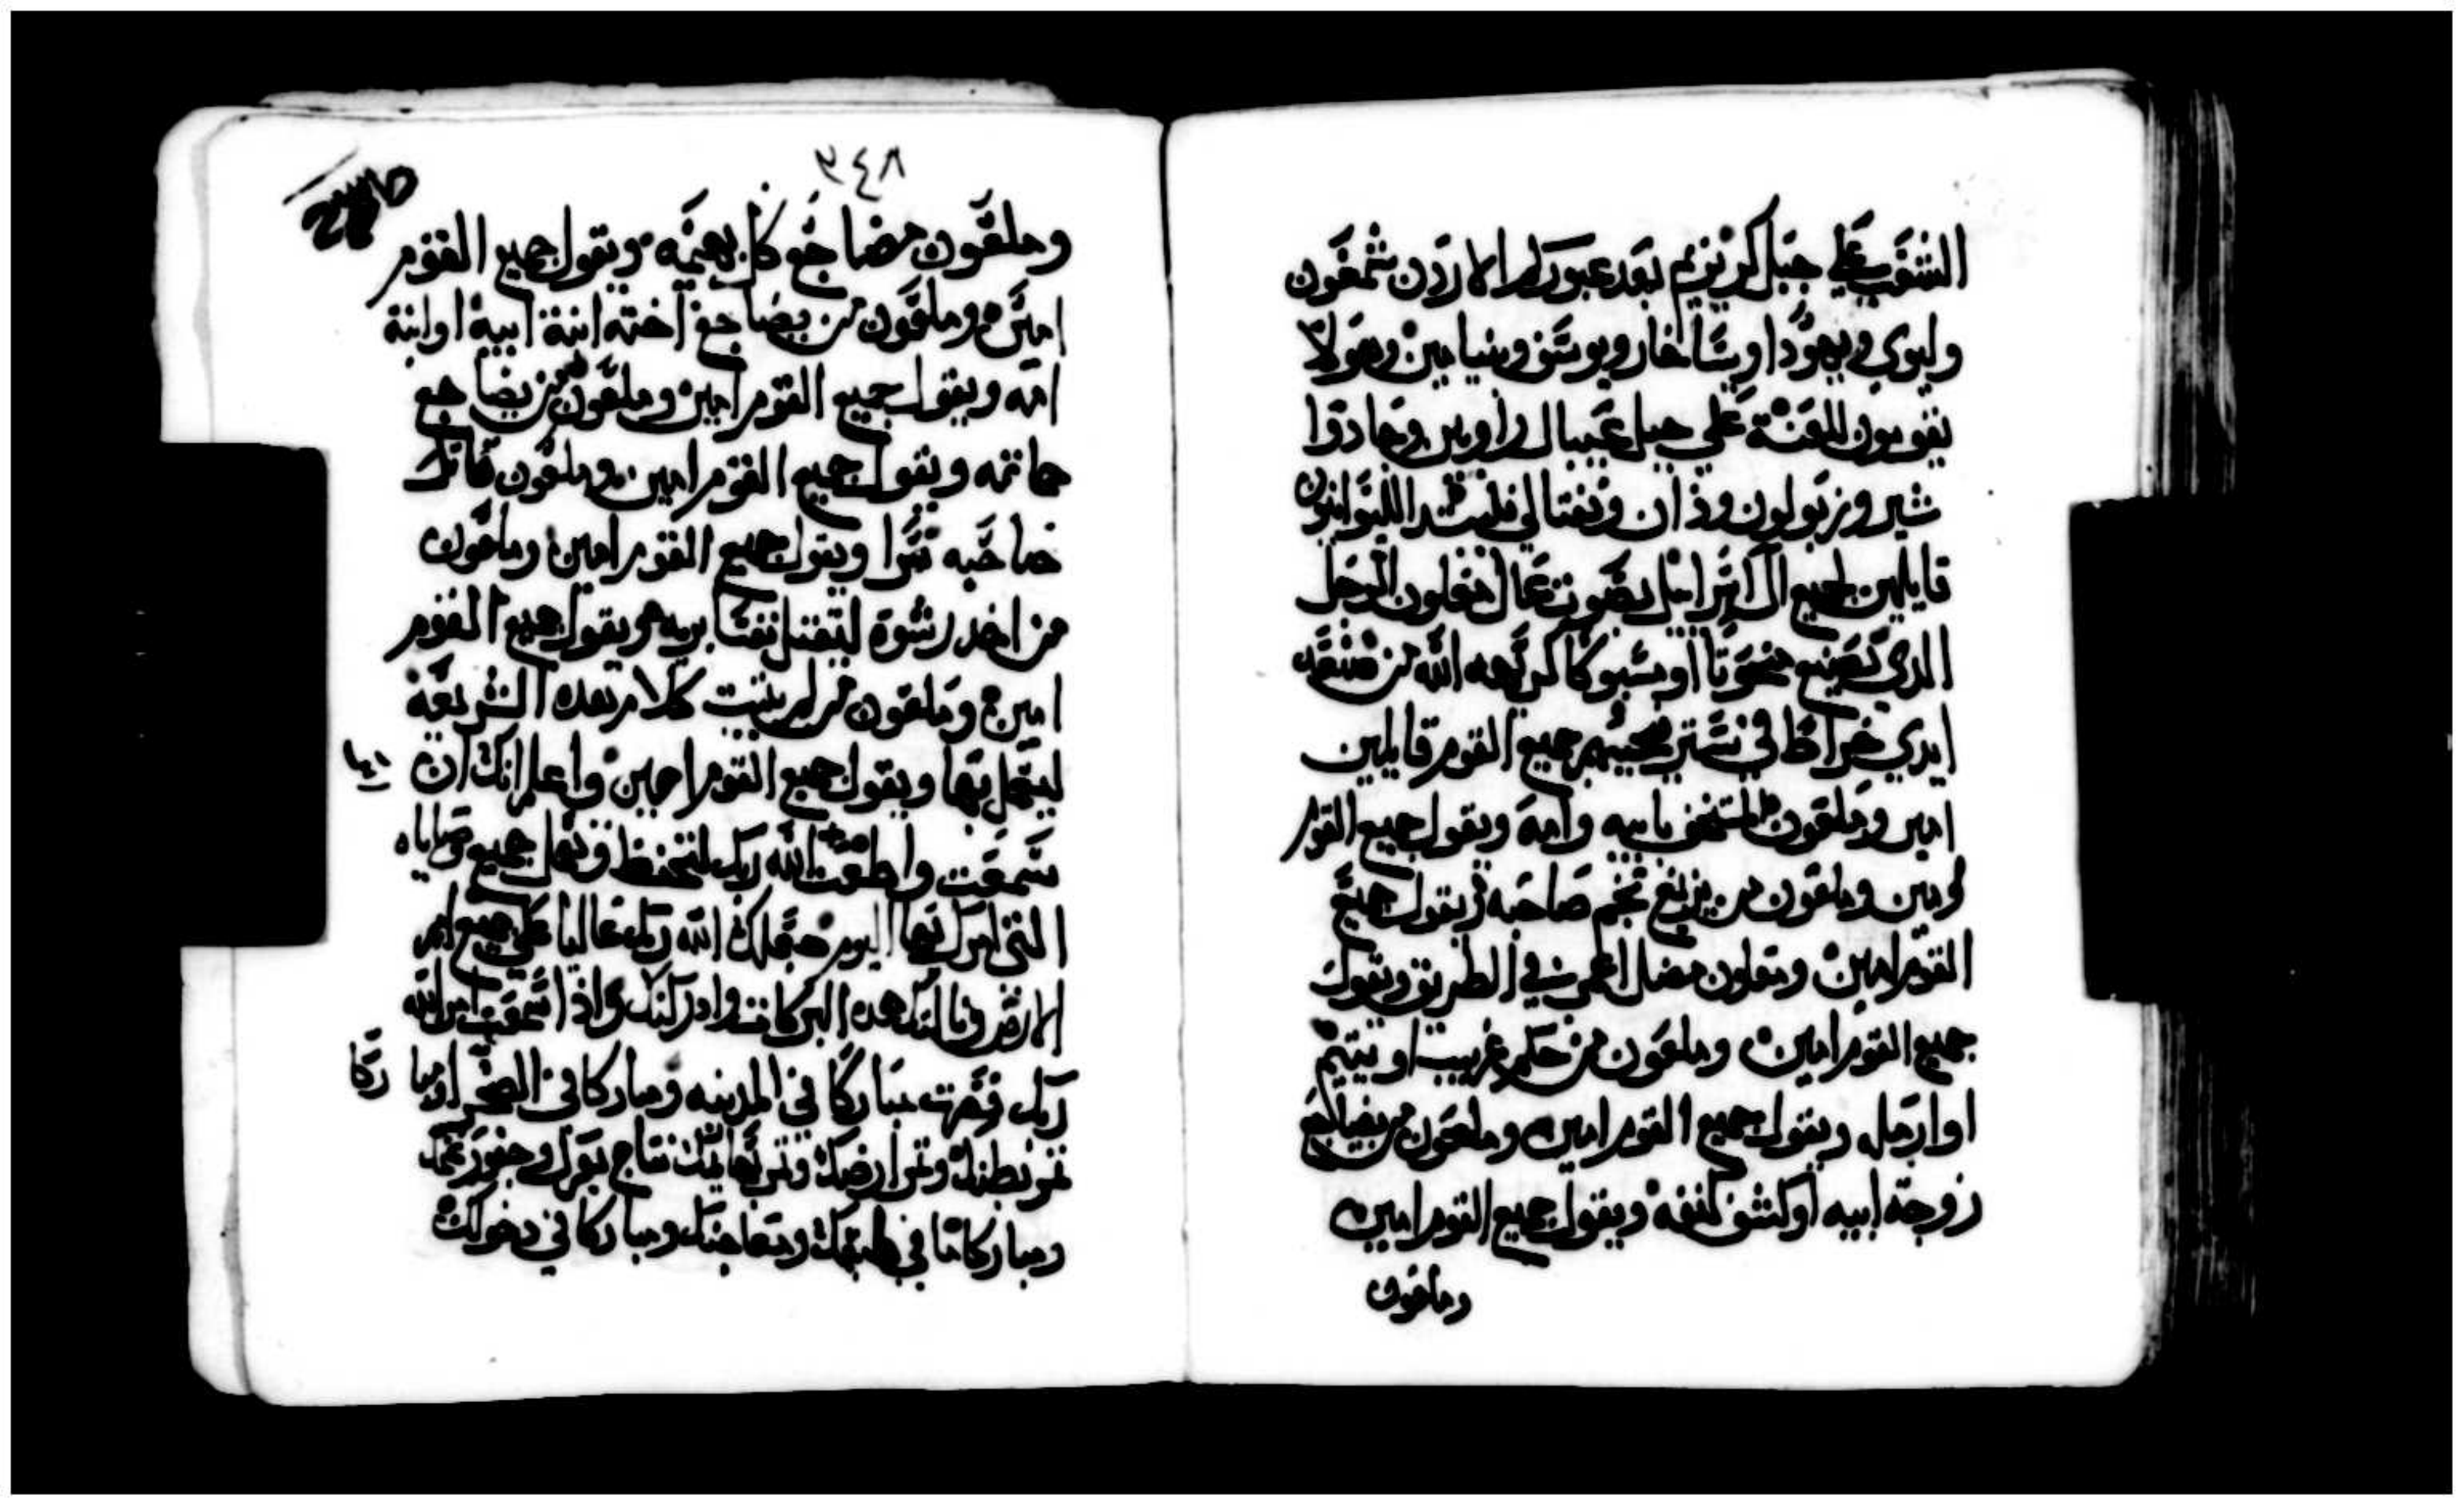 الشعب علي جبل كريزيم بعد عبوركم الاردن شمعون
وليوي ويهودا ويساخار ويوسف وبنيامين وهولا
يقومون للعنة علي جبل عيبال راوبين وجاد وا
شير وزبولون وذان ونفتالي فليبتد الليوانيون
قايلين لجميع ال اسراييل بصوت عال ملعون الرجل
الدي يصنع منحوتا او مسبوكا كريهه الله من صنعه
ايدي خراط في ستر فيجيبهم جميع القوم قايلين
امين وملعون المستخف بابيه وامه ويقول جميع القوم
امين وملعون من يزيغ تخم صاحبه ويقول جميع
القوم امين وملعون مضل اعمي في الطريق ويقول
جميع القوم امين وملعون من حكم غريب او يتيم
او ارمله ويقول جميع القوم امين وملعون من يضاجع
زوجة ابيه او كشف كنفه ويقول جميع القوم امين
وملعون
٣٤٨
وملعون مضاجع كل بهيمه ويقول جميع القوم
امين وملعون من يضاجع اخته ابنة ابيه او ابنة
امه ويقول جميع القوم امين وملعون من يضاجع
حماته ويقول جميع القوم امين وملعون قاتل
صاحبه سرا ويقول جميع القوم امين وملعون
من اخد رشوة ليقتل نفسا بريه ويقول جميع القوم
امين وملعون من لم يثبت كلام هده الشريعة
ليعمل بها ويقول جميع القوم امين واعلم انك ان
سمعت واطعت الله ربك لتحفظ وتعمل جميع وصاياه
التي امرك بها اليوم جعلك الله ربك عاليا علي جميع امم
الارض ونالتك هده البركات وادركتك واذا سمعت امر الله
ربك فصرت مباركا في المدينه ومباركا في الصحرا ومبا ركا
ثمر بطنك وثمر ارضك وثمر بهايمك نتاج بقرك وجفور غنمك
ومباركا في طبقك ومعاجنك ومباركا في دخولك